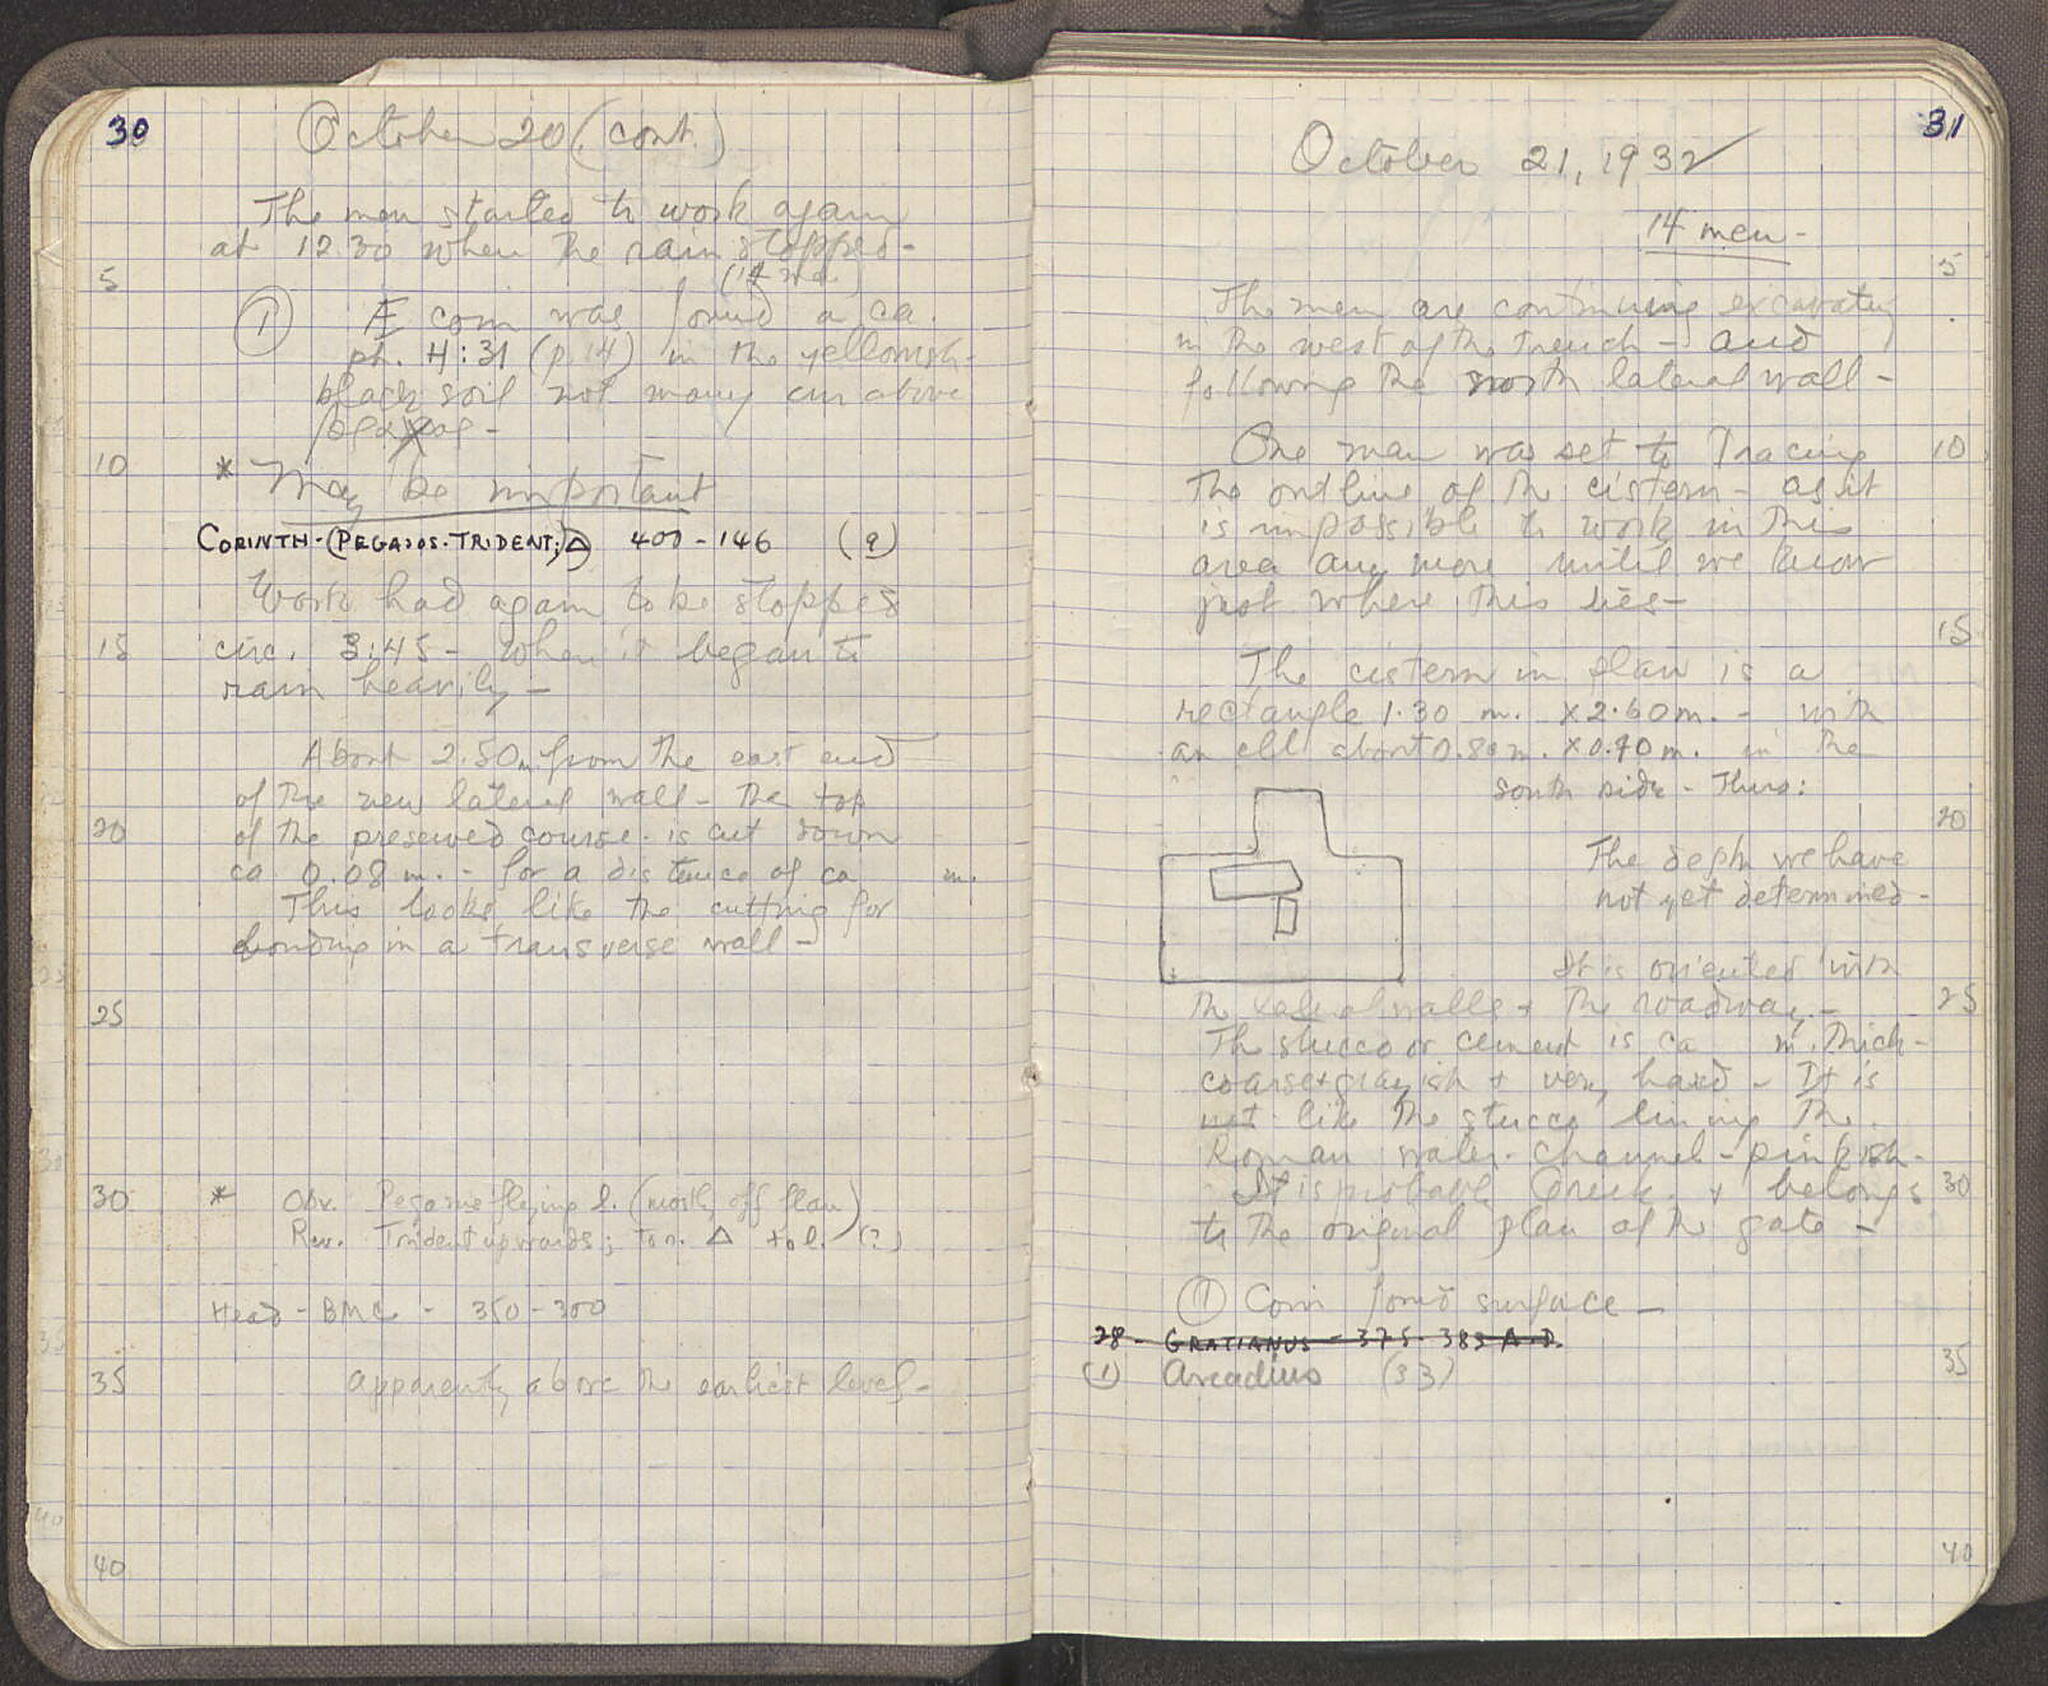 30
October 20 (cont.)
The men started to work again
at 12.30 when the rain stopped -
(14 men)
5
① Æ coin was found a ca.
ph. H:31 (p. 14) in the yellowish-
black soil not many cm above
10
* May be important
CORINTH - (PEGASOS. TRIDENT; Δ) 400 - 146 (9)
Work had again to be stopped
15
circ. 3:45 - when it began to
rain heavily -
About 2.50 m. from the east end
of the new lateral wall - the top
20
of the preserved course. is cut down
ca 0.08 m. - for a distance of ca m.
This looks like the cutting for
bonding in a transverse wall -
25
30
* Obv. Pegasus flying l. (mostly off flan)
Rev. Trident upwards; to r. Δ to l. (?)
Head - BMC - 350 - 300
35
apparently above the earliest level -
40
31
October 21, 1932
14 men -
5
The men are continuing excavating
in the west of the trench - and
following the north lateral wall -
10
One man was set to tracing
the outline of the cistern - as it
is impossible to work in this
area any more until we know
just where this lies -
15
The cistern in plan is a
rectangle 1.30 m. x 2.60 m. - with
an ell about 0.80 m. x 0.70 m. in the
south side - Thus:
20
The depth we have
not yet determined -
It is oriented with
25
the lateral walls + the roadway. -
The stucco or cement is ca m. thick -
coarse + grayish + very hard - It is
not like the stucco lining the
Roman water-channel - pinkish -
30
It is probably Greek. + belongs
to the original plan of the gate -
① Coin found surface -
28 - GRATIANUS - 375 - 383 A.D.
35
(1) Arcadius (33)
40